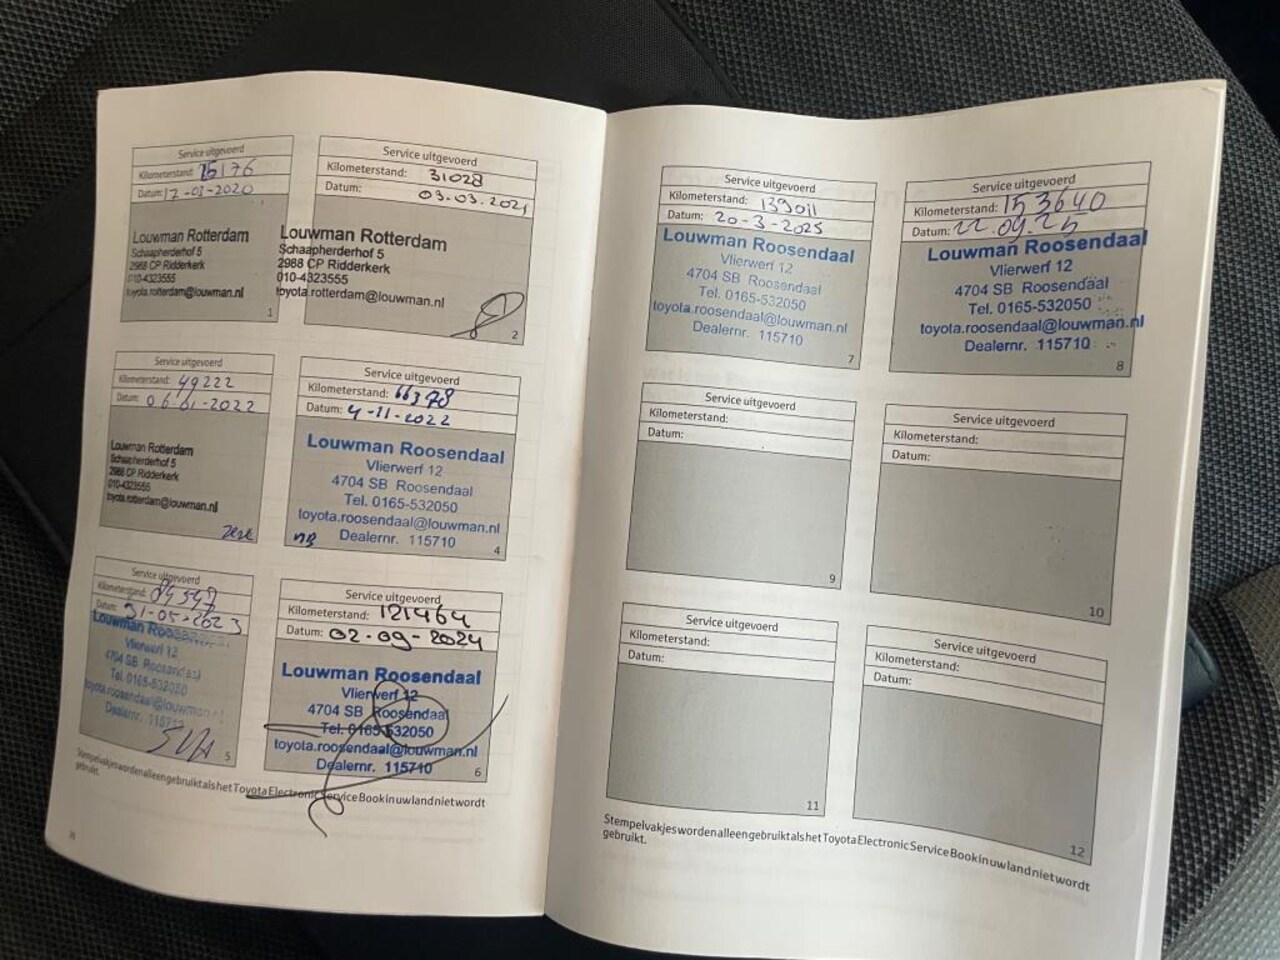 Service uitgevoerd
Kilometerstand: 15176
Datum: 12-03-2020
Louwman Rotterdam
Schaapherderhof 5
2988 CP Ridderkerk
010-4323555
toyota.rotterdam@louwman.nl
1
Service uitgevoerd
Kilometerstand: 31028
Datum: 03.03.2021
Louwman Rotterdam
Schaapherderhof 5
2988 CP Ridderkerk
010-4323555
toyota.rotterdam@louwman.nl
2
Service uitgevoerd
Kilometerstand: 49222
Datum: 06-01-2022
Louwman Rotterdam
Schaapherderhof 5
2988 CP Ridderkerk
010-4323555
toyota.rotterdam@louwman.nl
Service uitgevoerd
Kilometerstand: 66378
Datum: 4-11-2022
Louwman Roosendaal
Vlierwerf 12
4704 SB Roosendaal
Tel. 0165-532050
toyota.roosendaal@louwman.nl
Dealernr. 115710
4
Service uitgevoerd
Kilometerstand:
Datum: 31-05-2023
Louwman Roosendaal
Vlierwerf 12
4704 SB Roosendaal
Tel. 0165-532050
toyota.roosendaal@louwman.nl
Dealernr. 115710
5
Service uitgevoerd
Kilometerstand: 121464
Datum: 02-09-2024
Louwman Roosendaal
Vlierwerf 12
4704 SB Roosendaal
Tel. 0165-532050
toyota.roosendaal@louwman.nl
Dealernr. 115710
6
Stempelvakjes worden alleen gebruikt als het Toyota Electronic Service Book in uw land niet wordt
gebruikt.
Service uitgevoerd
Kilometerstand: 139011
Datum: 20-3-2025
Louwman Roosendaal
Vlierwerf 12
4704 SB Roosendaal
Tel. 0165-532050
toyota.roosendaal@louwman.nl
Dealernr. 115710
7
Service uitgevoerd
Kilometerstand: 153640
Datum: 22.09.25
Louwman Roosendaal
Vlierwerf 12
4704 SB Roosendaal
Tel. 0165-532050
toyota.roosendaal@louwman.nl
Dealernr. 115710
8
Service uitgevoerd
Kilometerstand:
Datum:
9
Service uitgevoerd
Kilometerstand:
Datum:
10
Service uitgevoerd
Kilometerstand:
Datum:
11
Service uitgevoerd
Kilometerstand:
Datum:
12
Stempelvakjes worden alleen gebruikt als het Toyota Electronic Service Book in uw land niet wordt
gebruikt.